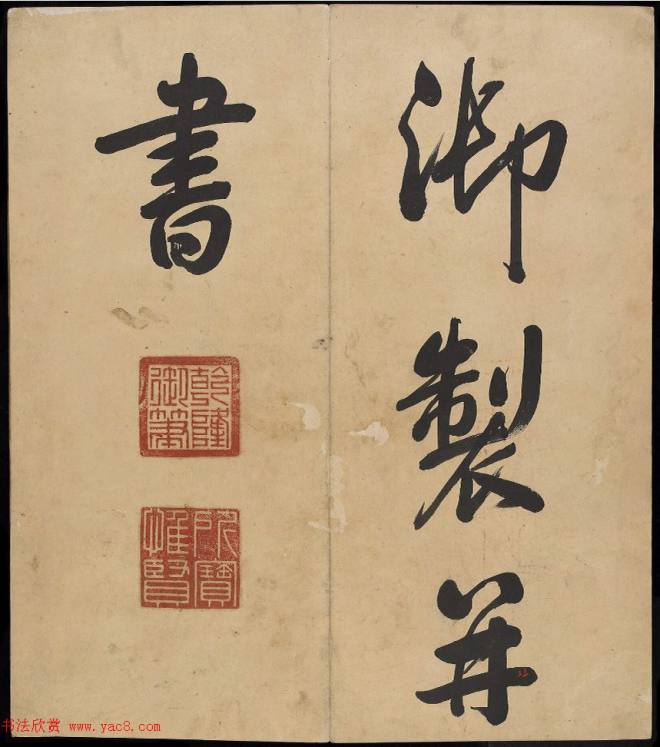 御製并
書
乾隆御筆
所寶惟賢
32
书法欣赏 www.yac8.com